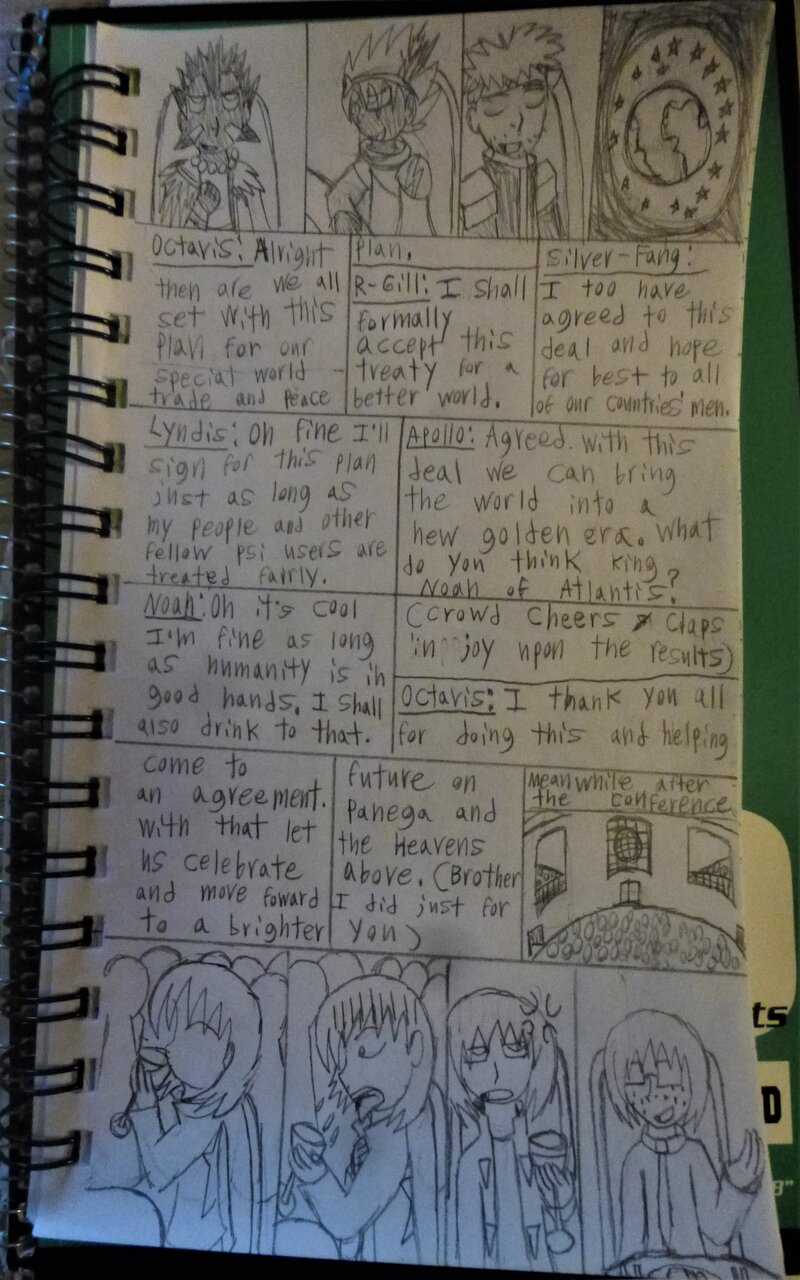 Octavis: Alright
then are we all
set with this
plan for our
special world
trade and peace
plan.
R-Gill: I shall
formally
accept this
treaty for a
better world.
Silver-Fang:
I too have
agreed to this
deal and hope
for best to all
of our countries' men.
Lyndis: Oh fine I'll
sign for this plan
just as long as
my people and other
fellow psi users are
treated fairly.
Apollo: Agreed. with this
deal we can bring
the world into a
new golden era. What
do you think king
Noah of Atlantis?
Noah: Oh it's cool
I'm fine as long
as humanity is in
good hands. I shall
also drink to that.
(crowd cheers & claps
in joy upon the results)
Octavis: I thank you all
for doing this and helping
come to
an agreement.
with that let
us celebrate
and move foward
to a brighter
future on
Panega and
the Heavens
above. (Brother
I did just for
you)
Meanwhile after
the conference
ts
D
8"